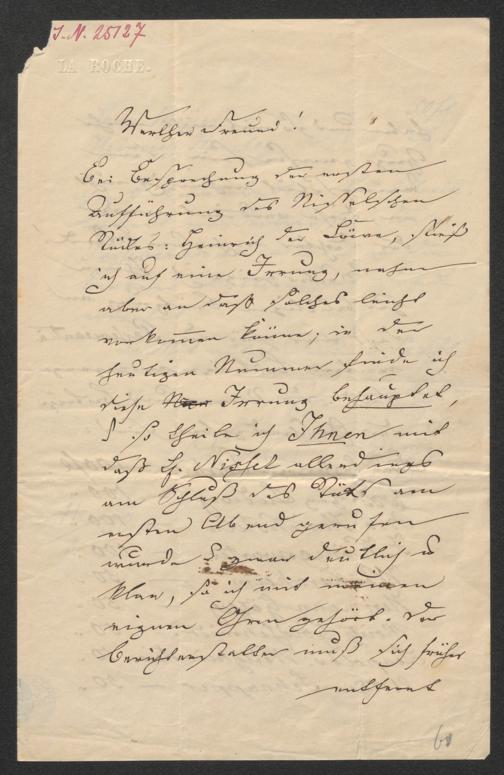 I.N. 25127
LA ROCHE.
Werther Freund!
Bei Besprechung der ersten
Aufführung des Nisselschen
Stückes: Heinrich der Löwe, stieß
ich auf eine Irrung, nahm
aber an daß solches leicht
vorkommen könne; in der
heutigen Nummer finde ich
diese Irrung behauptet,
so theile ich Ihnen mit
daß H. Nissel allerdings
am Schluß des Stücks am
ersten Abend gerufen
wurde u zwar deutlich u
klar, so ich mit meinen
eignen Ohren gehört. Der
Berichterstatter muß sich früher
entfernt
60